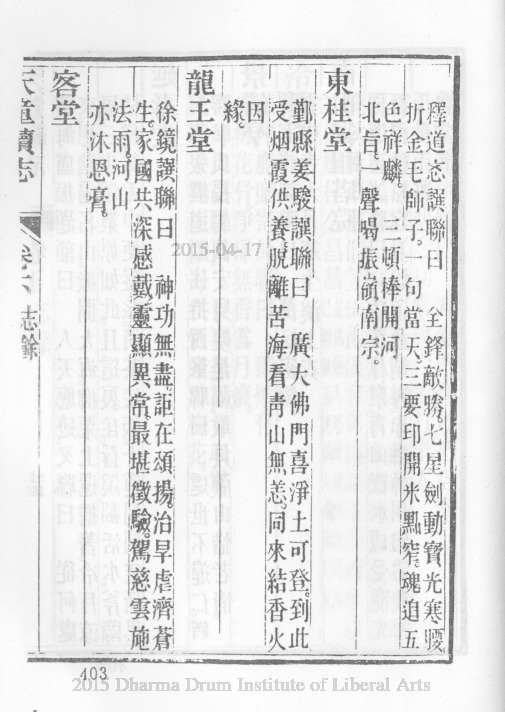 釋道忞譔聯曰　全鋒敵勝。七星劍動寶光寒。腰
折金毛師子。一句當天。三要印開米點窄。魂追五
色祥麟。　三頓棒開河
北旨。一聲喝振嶺南宗。
東桂堂
鄞縣姜駿譔聯曰　廣大佛門喜淨土可登。到此
受烟霞供養。脫離苦海看靑山無恙。同來結香火
因
緣。
龍王堂
徐鏡譔聯曰　神功無盡。詎在頌揚。治旱虐濟蒼
生。家國共深感戴。靈顯異常。最堪徵驗。駕慈雲施
法雨。河山
亦沐恩膏。
客堂
天童續志
卷　志餘
403
2015-04-17
2015 Dharma Drum Institute of Liberal Arts